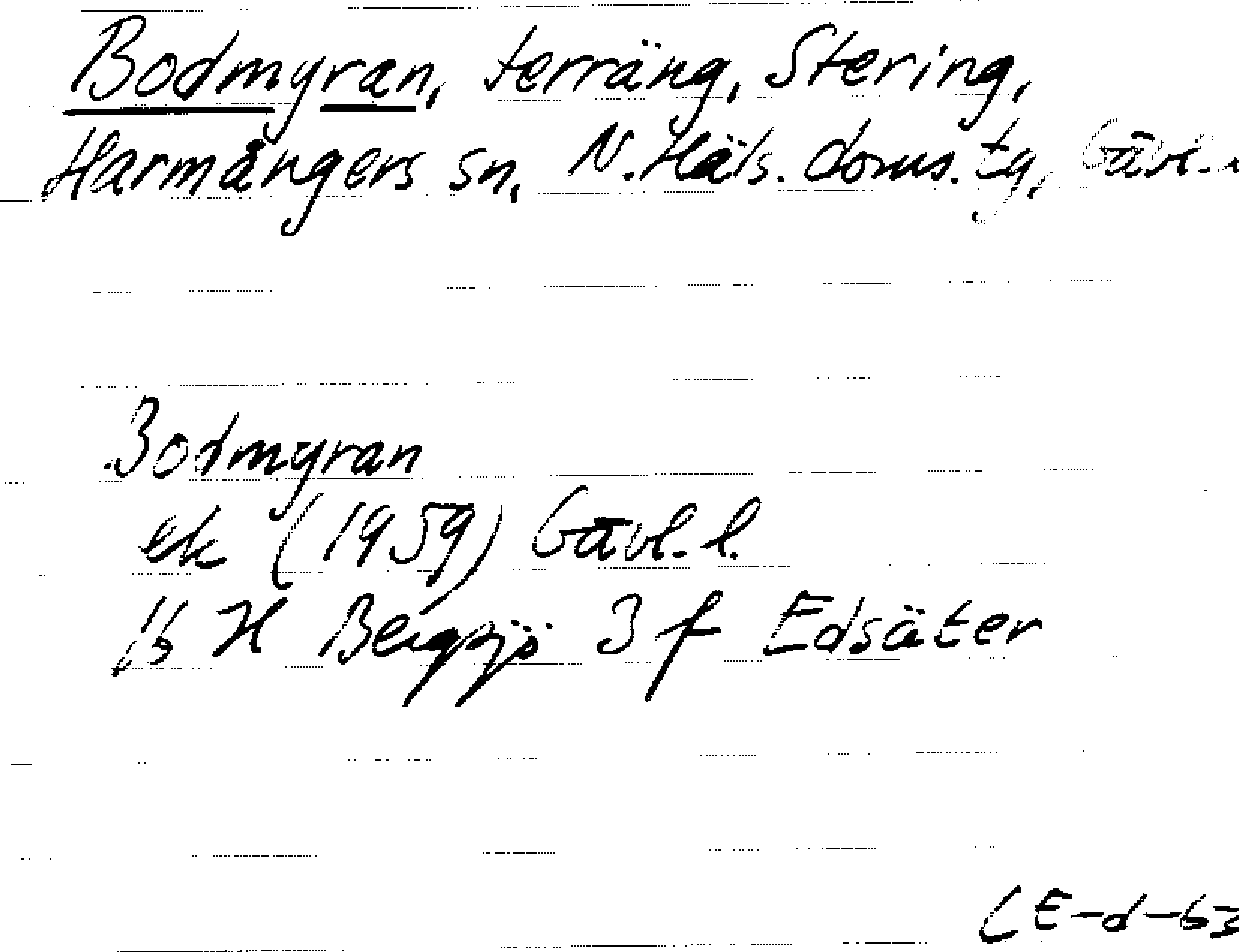 Bodmyran, terräng, Stering,
Harmångers sn, N. Häls. doms. tg, Gävl.
Bodmyran
ek (1959) Gävl. l.
16 H Bergsjö 3 f Edsäter
CE-d-63